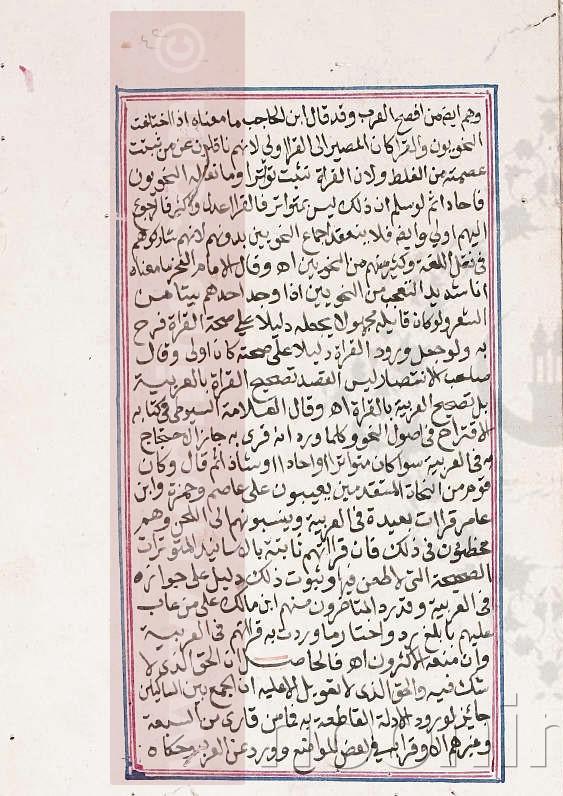 وهم ايضا من افصح العرب وقد قال ابن الحاجب ما معناه اذا اختلفت
النحويون والقرا كان المصير الى القرا اولى لانهم ناقلون عن من ثبتت
عصمته من الغلط ولان القراة ثبتت تواترا وما نقله النحويون
فاحاد ثم لو سلم ان ذلك ليس بمتواتر فالقرا اعدل واكثر فالرجوع
اليهم اولى وايضا فلا ينعقد اجماع النحويين بدونهم لانهم شاركوهم
في نقل اللغة وكثير منهم من النحويين اه وقال الامام الفخر ما معناه
انا شديد التعجب من النحويين اذا وجد احدهم بيتا من
الشعر ولو كان قايله مجهولا يجعله دليلا على صحة القراة فرح
به ولو جعل ورود القراة دليلا على صحته كان اولى وقال
صاحب الانتصار ليس القصد تصحيح القراة بالعربية
بل تصحيح العربية بالقراة اه وقال العلامة السيوطي في كتابه
الاقتراح في اصول النحو وكلما ورد انه قرى به جاز الاحتجاج
به في العربية سوا كان متواترا او احادا او شاذا ثم قال وكان
قوم من النحاة المتقدمين يعيبون على عاصم وحمزة وابن
عامر قراات بعيدة في العربية وينسبونهم الى اللحن وهم
مخطئون في ذلك فان قرااتهم ثابتة بالاسانيد المتواترات
الصحيحة التي لا طعن فيها وثبوت ذلك دليل على جوازه
في العربية وقد رد المتاخرون منهم ابن مالك على من عاب
عليهم بابلغ رد واختار ما وردت به قرااتهم في العربية
وان منعه الاكثرون اه فالحاصل ان الحق الذي لا
شك فيه والحق الذي لا تعويل الا عليه ان الجمع بين الساكنين
جايز لورود الادلة القاطعة به فما من قارى من السبعة
وغيرهم الا وقرا به في بعض المواضع وورد عن العرب وحكاه